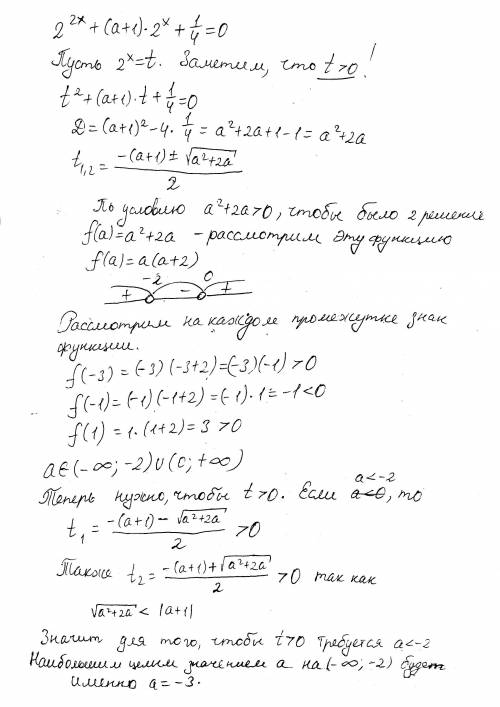 2^{2x} + (a+1)·2^x + 1/4 = 0
Пусть 2^x = t. Заметим, что t>0!
t² + (a+1)·t + 1/4 = 0
D = (a+1)² - 4·1/4 = a²+2a+1-1 = a²+2a
t_{1,2} = (-(a+1) ± √(a²+2a))/2
По условию a²+2a>0, чтобы было 2 решение
f(a) = a²+2a - рассмотрим эту функцию
f(a) = a(a+2)
-2 0
+ - +
Рассмотрим на каждом промежутке знак
функции.
f(-3) = (-3)(-3+2) = (-3)(-1) > 0
f(-1) = (-1)(-1+2) = (-1)·1 = -1 < 0
f(1) = 1·(1+2) = 3 > 0
a∈(-∞; -2)∪(0; +∞)
a<-2
Теперь нужно, чтобы t>0. Если a<0, то
t₁ = (-(a+1) - √(a²+2a))/2 > 0
Также t₂ = (-(a+1) + √(a²+2a))/2 > 0 так как
√(a²+2a) < |a+1|
Значит для того, чтобы t>0 требуется a<-2
Наибольшим целым значением a на (-∞; -2) будет
именно a = -3.